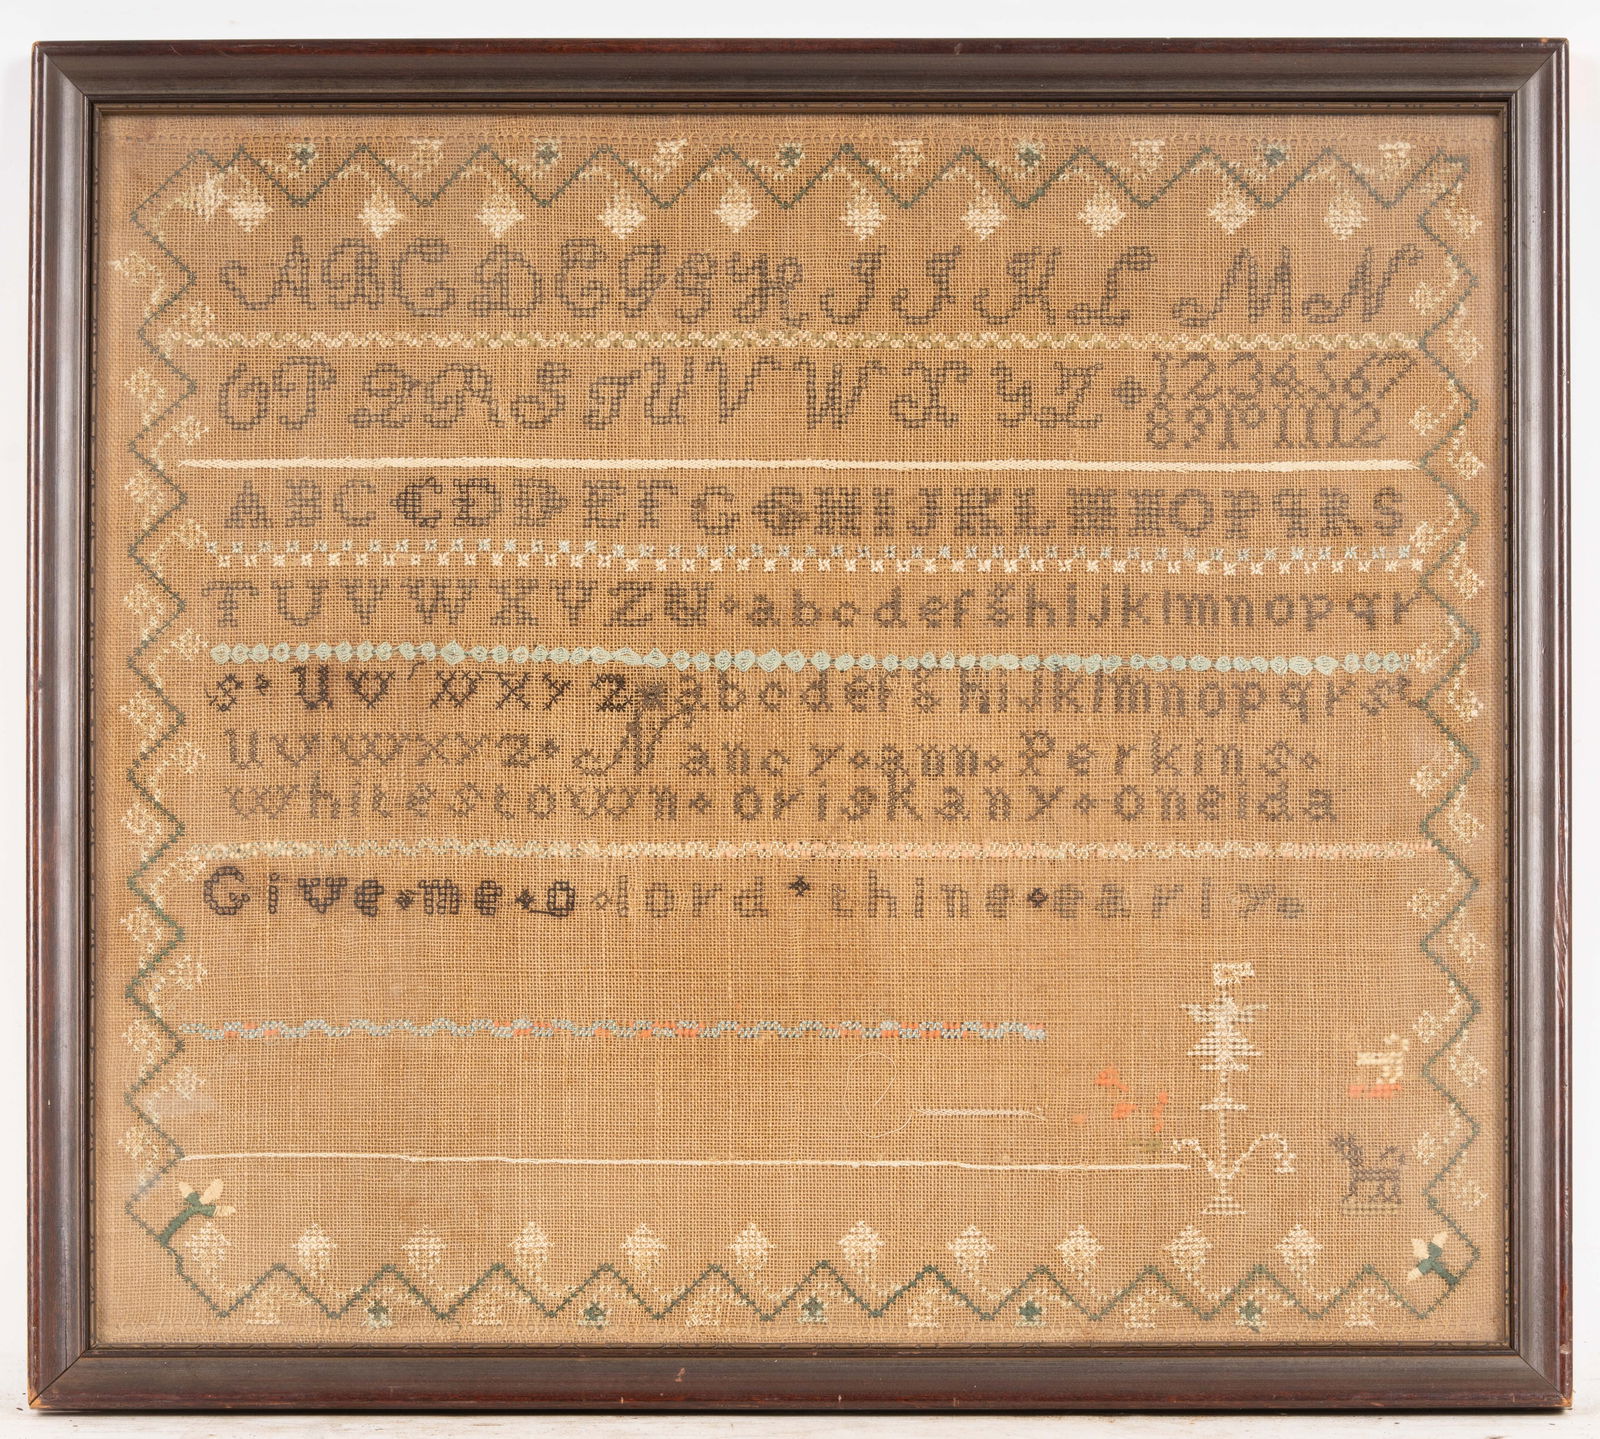 A B C D E F G H I J K L M N
O P Q R S T U V W X Y Z 1 2 3 4 5 6 7
8 9 10 11 12
A B C C D D E F G G H I J K L M N O P q R S
T U V W X Y Z N a b c d e f g h I J k l m n o p q r
s u v w x y z a b c d e f g h i J k l m n o p q r s t
u v w x y z Nancy ann Perkins
whitestown oriskany oneida
Give me o lord thine early